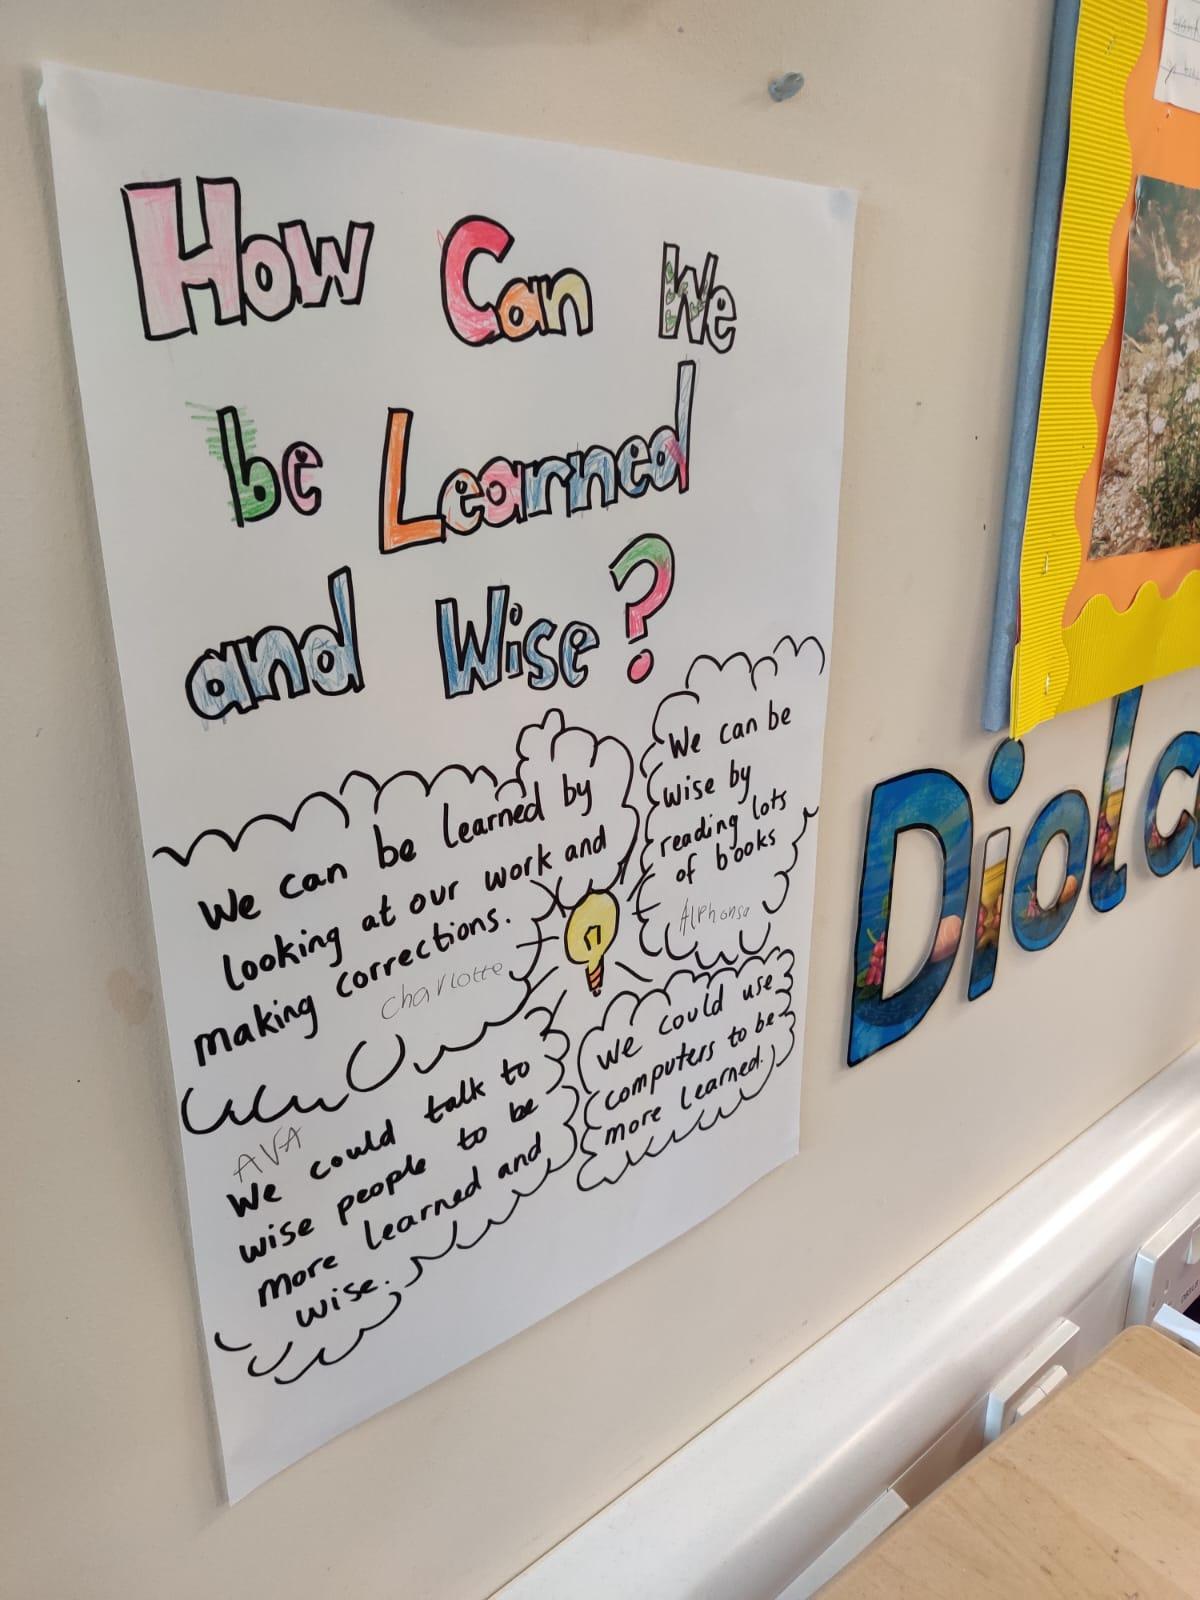 How Can We
be Learned
and Wise?
We can be learned by
looking at our work and
making corrections.
charlotte
We can be
wise by
reading lots
of books
Alphonse
AVA
We could talk to
wise people to be
more learned and
wise.
We could use
computers to be
more learned.
Diola